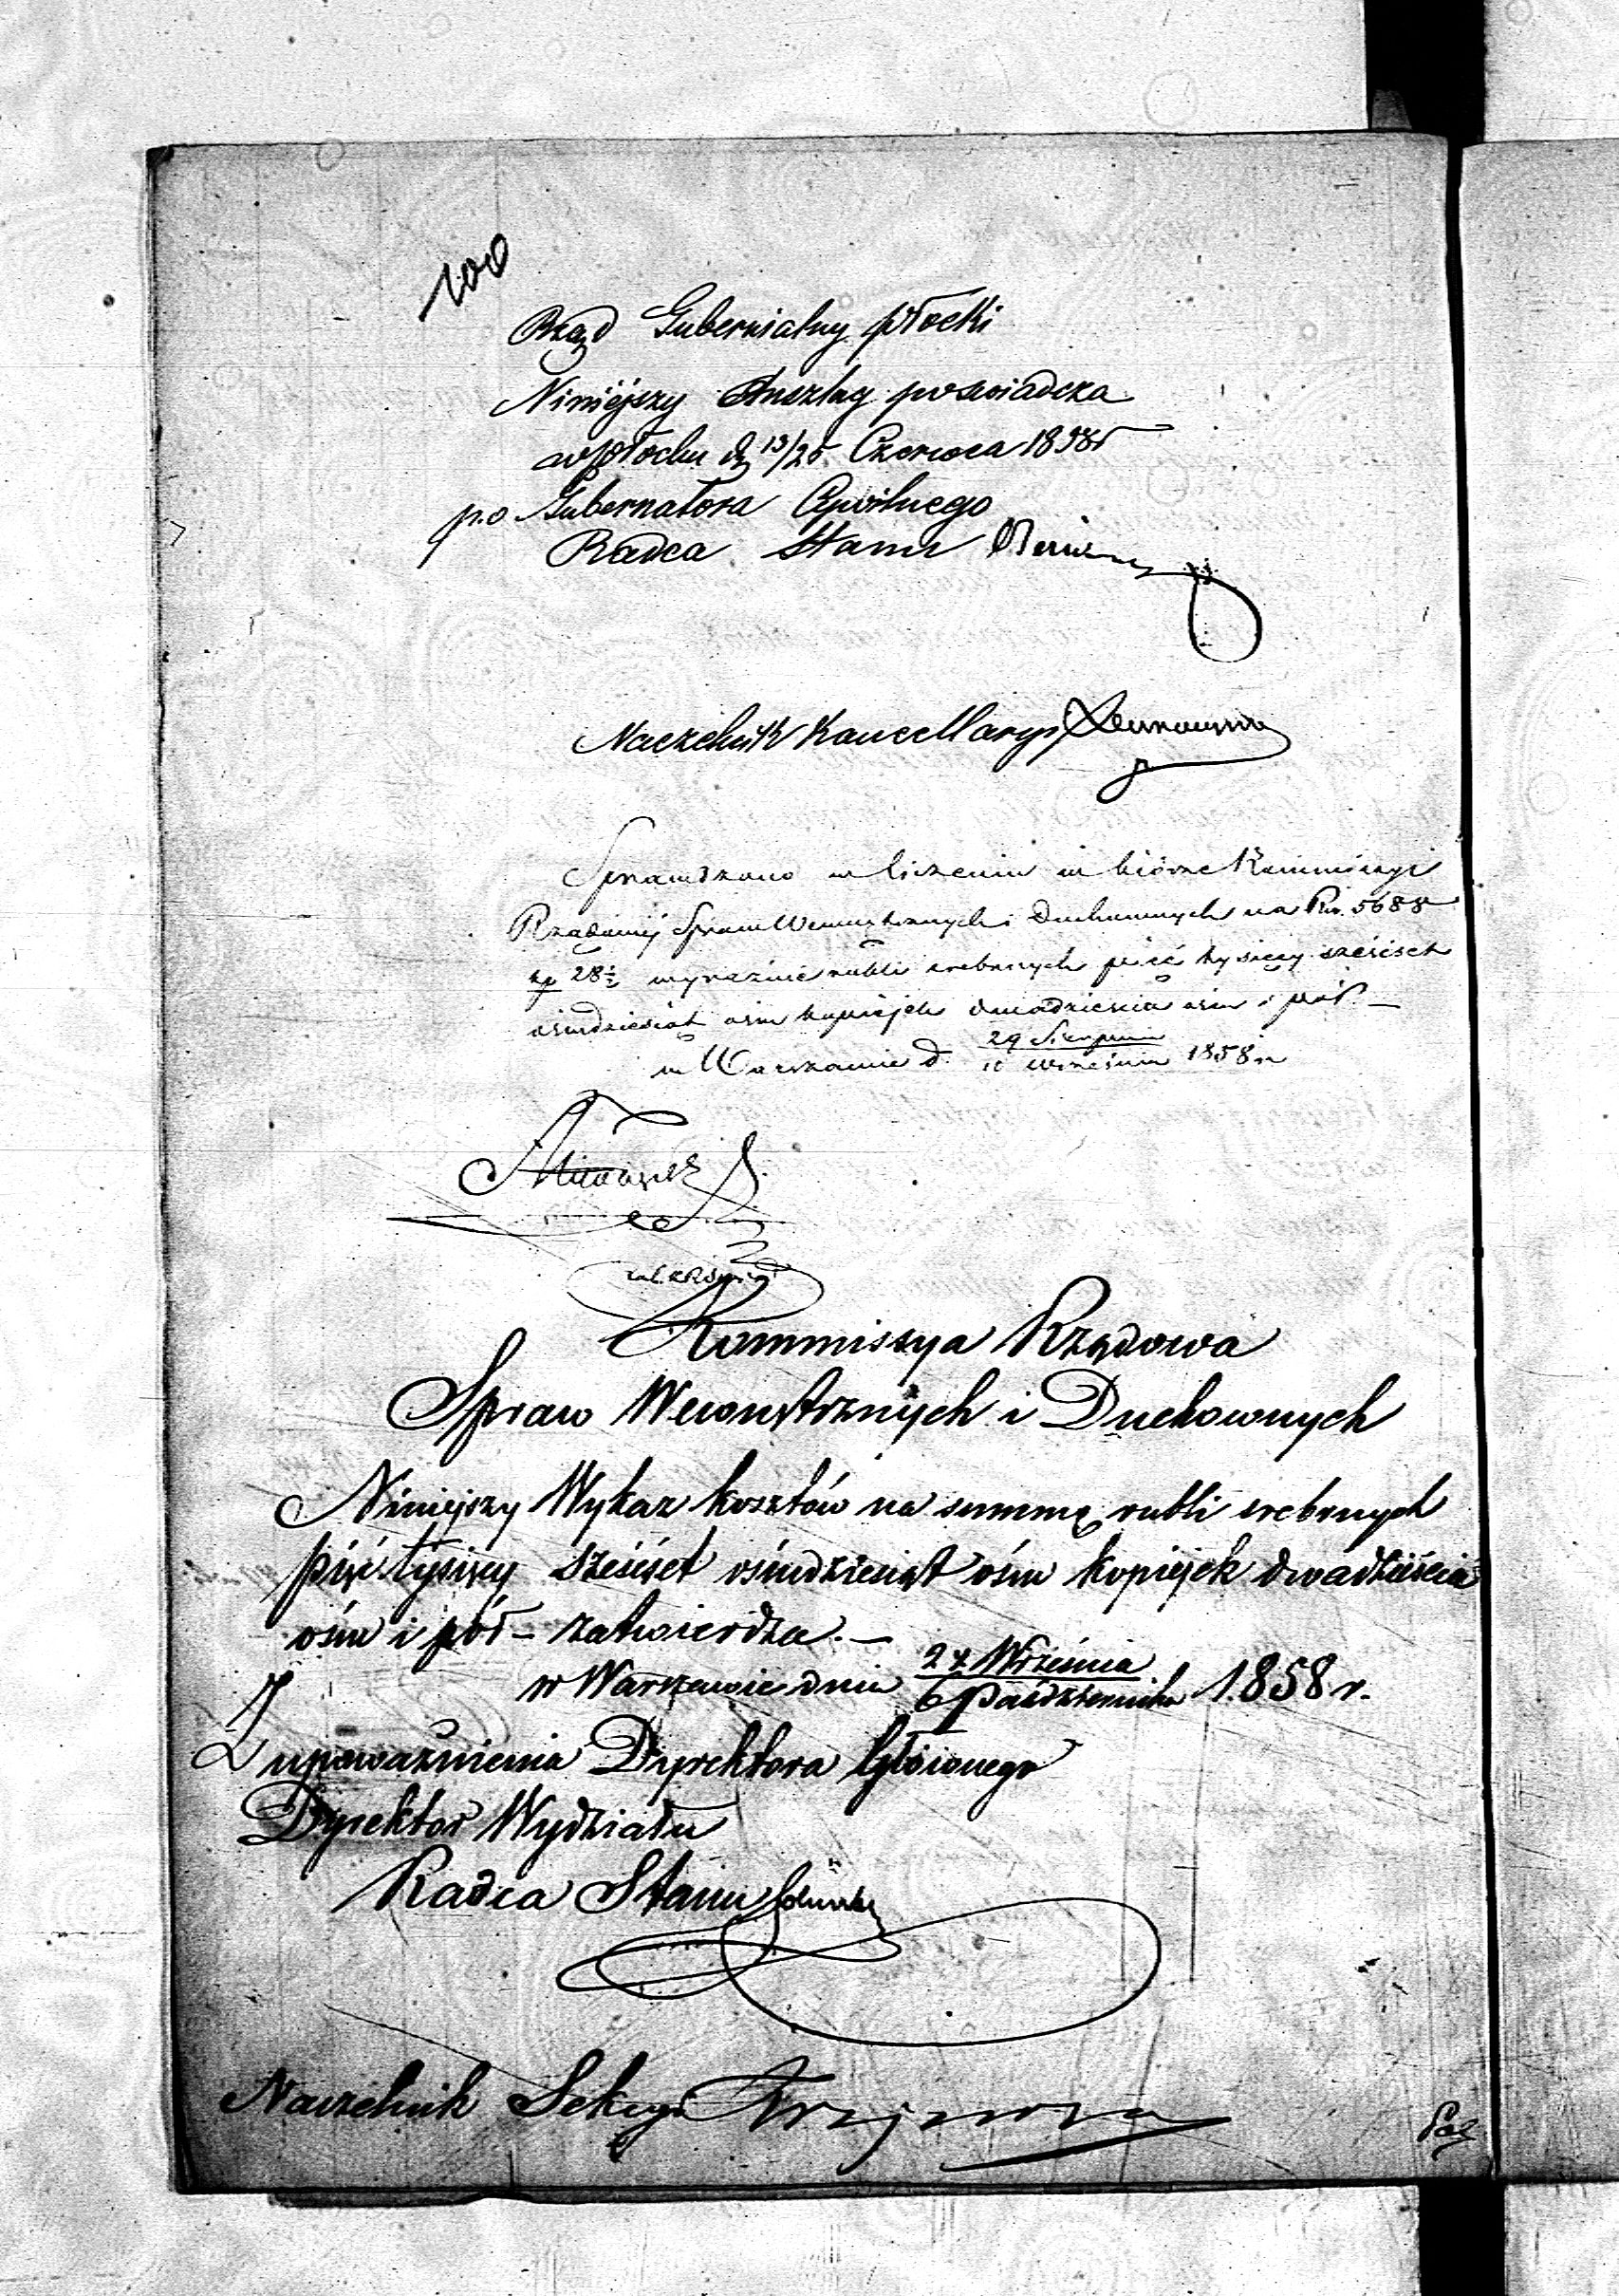 100
Rząd Gubernialny płocki
Niniejszy Anszlag poświadcza
w Płocku d. 13/25 Czerwca 1858 r
p.o Gubernatora Cywilnego
Radca Stanu
Naczelnik Kancellaryi
Sprawdzono w liczeniu w biórze Kommissyi
Rządowéj Spraw Wewnętrznych i Duchownych na Rsr. 5688
kp 28½ wyraźnie rubli srebrnych pięć tysięcy sześćset
ośmdziesiąt ośm kopiejek dwadzieścia ośm i pół —
w Warszawie d. 29 Sierpnia
10 Września 1858 r
Kommissya Rządowa
Spraw Wewnętrznych i Duchownych
Niniejszy Wykaz kosztów na summę rubli srebrnych
pięć tysięcy sześćset ośmdziesiąt ośm kopiejek dwadzieścia
ośm i pół – zatwierdza. —
w Warszawie dnia 24 Września
6 Października 1858 r.
Z upoważnienia Dyrektora Głównego
Dyrektor Wydziału
Radca Stanu
Naczelnik Sekcyi